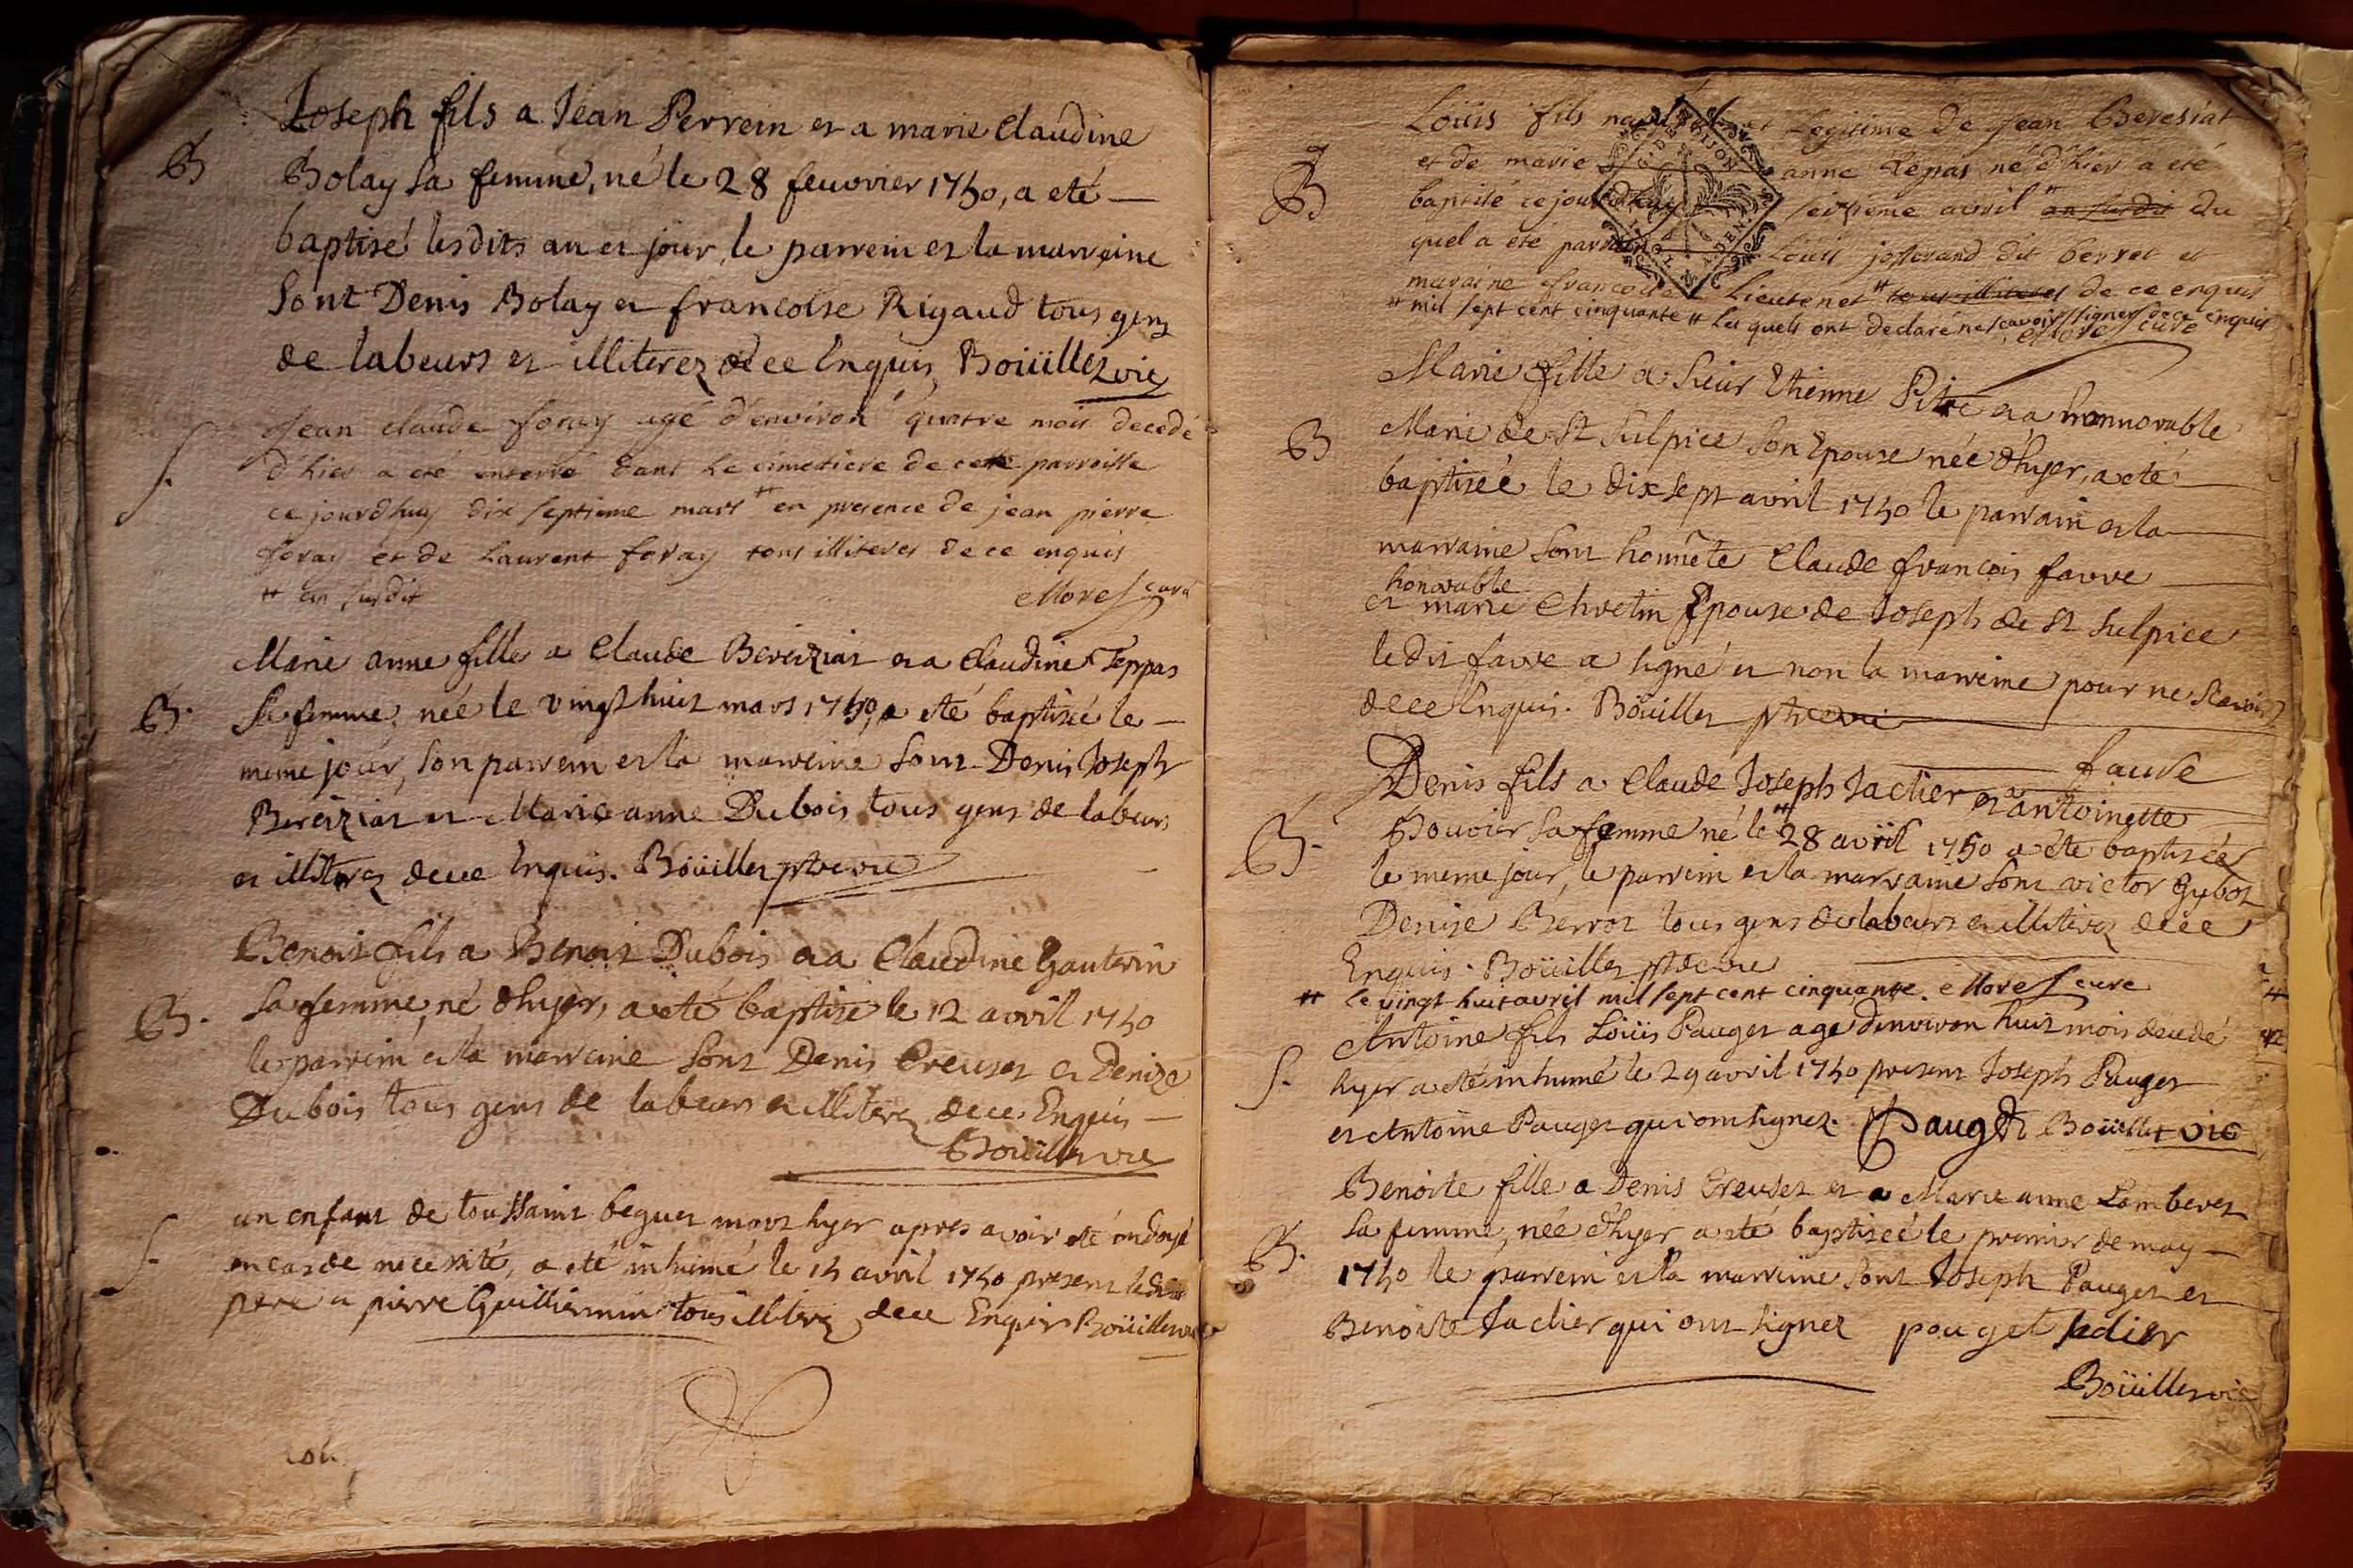 Joseph fils a Jean Perrein et a marie claudine
B Bolay sa femme, né le 28 feuvrier 1750, a eté
baptisé lesdits an et jour, le parrein et la marreine
sont Denis Bolay et francoise Rigaud tous gens
de labeurs et illiterez de ce Enquis Boüillet vic
Jean claude foray agé d'environ quatre mois decedé
S. d'hier a eté enterré dans le cimetiere de cette parroisse
ce jourdhuy dix septieme mars # en presence de jean pierre
foray et de Laurent foray tous illiteres de ce enquis
# an susdit Morel curé
Marie anne fille a Claude Bereiziat et a Claudine Teppas
B. Sa femme, née le vingt huit mars 1750, a eté baptisée le
meme jour, son parrein et la marreine sont Denis Joseph
Bereiziat et Marie anne Dubois tous gens de labeurs
et illiterez de ce Enquis. Boüillet ptre vic
Benoit fils a Benoit Dubois et a Claudine Gauterin
B. sa femme, né d'hyer, a eté baptisé le 12 avril 1750
le parrein et la marreine sont Denis Creuset et Denize
Dubois tous gens de labeurs et illiterez de ce Enquis
Boüillet vic
un enfant de toussaint beguet mort hyer apres avoir eté ondoyé
S. en cas de necessité, a eté inhumé le 15 avril 1750 present ledit
pere et pierre Guilliermin tous illiterez de ce Enquis Boüillet vic
Loüis fils et Legitime de Jean Beresiat
B et de marie anne Tepas né d'hier a eté
baptisé ce jourdhuy seizieme avril # an susdit du
quel a eté parrain Loüis josserand dit berret et
maraine francoise Lieutenet # tous illiteres de ce enquis
# mil sept cent cinquante # Les quels ont declaré ne scavoir signer de ce enquis
Morel curé
Marie fille a sieur Etienne Pitre et a honnorable
B Marie de St Sulpice son Epouse née d'hyer, a eté
baptiseé le dix sept avril 1750 le parrain et la
marraine sont honnête Claude francois favre
honorable
et marie Chretin Epouse de Joseph de St Sulpice
le dit favre a signé et non la marreine pour ne scavoir
de ce Enquis. Boüillet ptre vic
favre
Denis fils a Claude Joseph Jactier et a antoinette
B. Bouvier sa femme né le # 28 avril 1750 a eté baptisé
le meme jour, le parrein et la marraine sont victor Gubot
Denise Berrot tous gens de labeurs et illiterez de ce
Enquis. Boüillet ptre vic
# le vingt huit avril mil sept cent cinquante. Morel curé
Antoine fils Loüis Pauget agé d'environ huit mois decedé
S. hyer a eté inhumé le 29 avril 1750 present Joseph Pauget
et Antoine Pauget qui ont signez. Pauget Boüillet vic
Benoite fille a Denis Creuset et a Marie anne Lamberet
B. sa femme, née d'hyer a eté baptiseé le premier de may
1750 le parrein et la marreine sont Joseph Pauget et
Benoite Jactier qui ont signez pouget
Boüillet vic